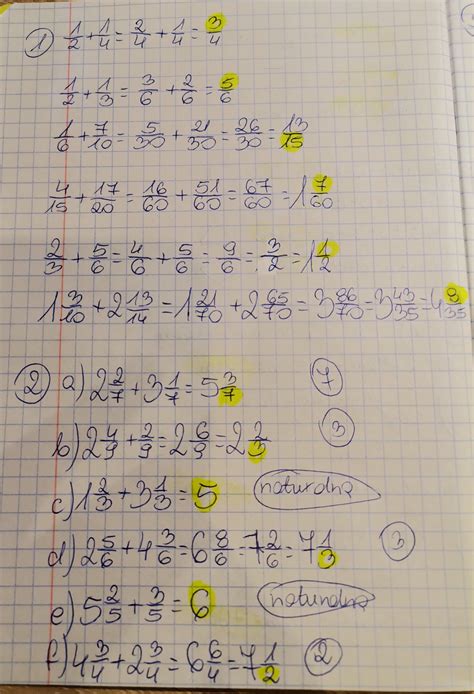 1) 1/2 + 1/4 = 2/4 + 1/4 = 3/4
1/2 + 1/3 = 3/6 + 2/6 = 5/6
1/6 + 7/10 = 5/30 + 21/30 = 26/30 = 13/15
4/15 + 17/20 = 16/60 + 51/60 = 67/60 = 1 7/60
2/3 + 5/6 = 4/6 + 5/6 = 9/6 = 3/2 = 1 1/2
1 3/10 + 2 13/14 = 1 21/70 + 2 65/70 = 3 86/70 = 3 43/35 = 4 8/35
2 a) 2 2/7 + 3 1/7 = 5 3/7 7
b) 2 4/9 + 2/9 = 2 6/9 = 2 2/3 3
c) 1 2/3 + 3 1/3 = 5 naturalna
d) 2 5/6 + 4 3/6 = 6 8/6 = 7 2/6 = 7 1/3 3
e) 5 2/5 + 3/5 = 6 naturalna
f) 4 3/4 + 2 3/4 = 6 6/4 = 7 1/2 2